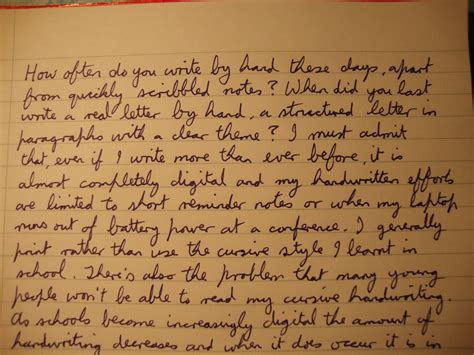 How often do you write by hand these days, apart
from quickly scribbled notes? When did you last
write a real letter by hand, a structured letter in
paragraphs with a clear theme? I must admit
that, even if I write more than ever before, it is
almost completely digital and my handwritten efforts
are limited to short reminder notes or when my laptop
runs out of battery power at a conference. I generally
print rather than use the cursive style I learnt in
school. There's also the problem that many young
people won't be able to read my cursive handwriting.
As schools become increasingly digital the amount of
handwriting decreases and when it does occur it is in